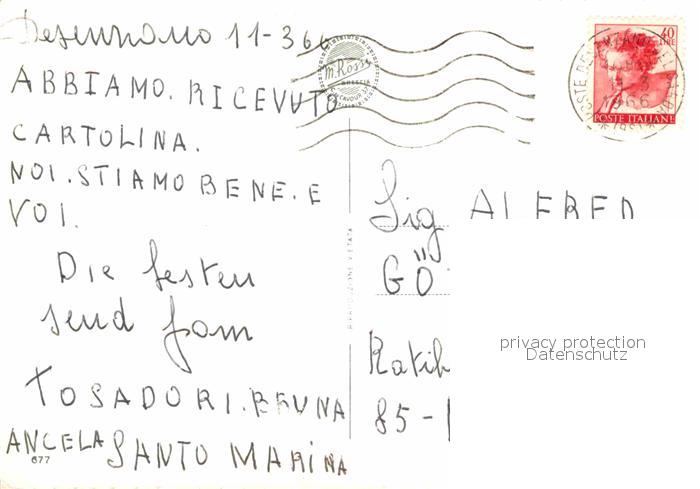 Desenzano 11-3 66
ABBIAMO. RICEVUTO
CARTOLINA.
NOI. STIAMO BENE. E
VOI.
Die besten
send fom
TOSADORI. BRUNA
ANGELA SANTO MARINA
677
M. Rossi
40
LIRE
POSTE ITALIANE
RIPRODUZIONE VIETATA
Sig ALFRED
GÖ
Ratib
85-1
privacy protection
Datenschutz